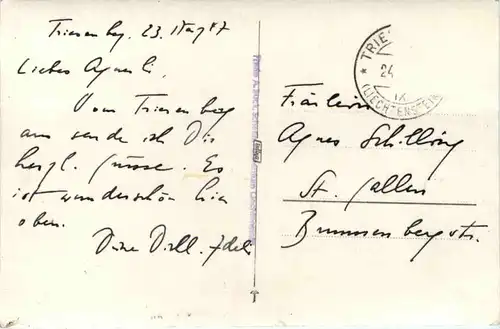 Triesenberg, 23. 47
Liebes Agnesli,
Vom Triesenberg
aus sende ich Dir
herzl. Grüsse. Es
ist wunderschön hier
oben.
Deine
Fräulein
Agnes Schilling
St. Gallen
Brunnenbergstr.
TRIE
24
IX
(LIECHTENSTEIN)